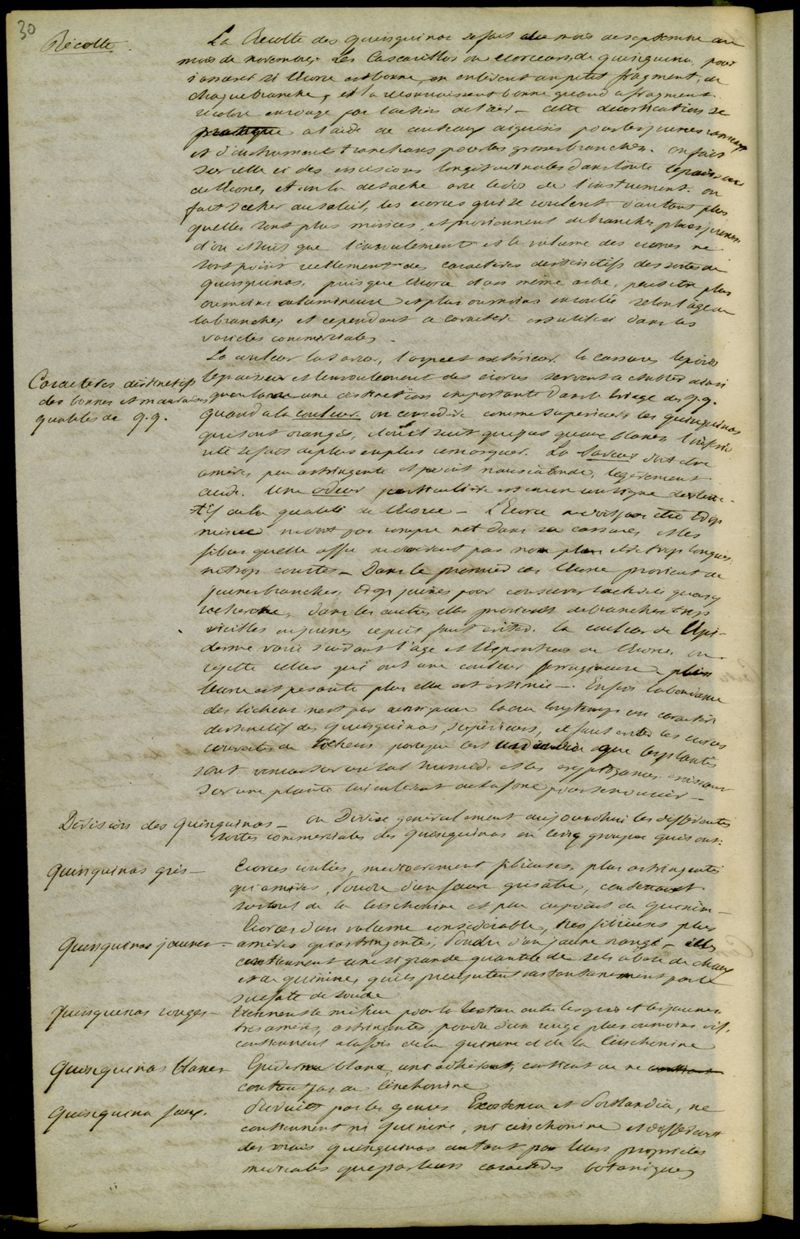 30
Récolte.
La Récolte des quinquinas se fait du mois de septembre au
mois de novembre. Les Cascarillos ou écorceurs de quinquina, pour
s'assurer si l'écorce est bonne, en enlèvent un petit fragment, de
chaque branche, et la reconnaissent bonne quand ce fragment
se colore en rouge par l'action de l'air - cette décortication se
pratique à l'aide de couteaux aiguisés pour les jeunes rameaux
et d'instruments tranchans pour les grosses branches. on fait
sur elle ci des incisions longitudinales dans toute l'épaisseur
de l'écorce, et on la détache avec le dos de l'instrument. on
fait sécher au soleil, les écorces qui se roulent d'autant plus
qu'elles sont plus minces, et proviennent de branches plus jeunes
d'où il suit que l'enroulement et le volume des écorces ne
sont point réellement des caractères distinctifs des sortes de
quinquinas, puisque l'écorce d'un même arbre, peut être plus
ou moins volumineuse et plus ou moins enroulée selon l'âge de
la branche, et cependant ce caractère est utilisé dans les
variétés commerciales.
Caractères distinctifs
des bonnes et mauvaises
qualités de q.q.
La couleur la saveur, l'aspect extérieur la cassure, le poids
l'épaisseur et l'enroulement des écorces servent à établir ainsi
que l'odeur une distinction importante dans le triage des q.q.
quand à la couleur on considère comme supérieurs les quinquinas
qui sont orangés, il suit que plus
elle se fait de plus en plus remarquer. La saveur doit être
amère, peu astringente et point nauséabonde, légèrement
acide. Une odeur particulière est encore un signe distinc-
tif de la qualité de l'écorce - L'Écorce ne doit pas être trop
mince ni doit pas rompre net dans sa cassure, et les
fibres qu'elle offre ne doivent pas non plus être trop longues,
ni trop courtes - Dans le premier cas l'écorce provient de
jeunes branches, trop jeunes pour conserver
recherche, dans les autres elles proviennent de branches trop
vieilles ou jeunes ce qu'il faut éviter. La couleur de l'Epi-
derme varie suivant l'âge et l'exposition de l'écorce. on
rejette celles qui ont une couleur ferrugineuse, plus
l'écorce est pesante plus elle est estimée - Enfin l'abondance
des lichens n'est pas ainsi qu'on l'a cru longtemps un caractère
distinctif des quinquinas supérieurs, il faut éviter les écorces
couvertes de lichens parce que c'est un indice que les plantes
sont venues sur un sol humide et les cryptogames croissant
sur une plante
Division des quinquinas - on Divise généralement aujourd'hui les différentes
sortes commerciales des quinquinas en cinq groupes qui sont:
Quinquinas gris - Écorces roulées, médiocrement fibreuses, plus astringentes
qu'amères, Poudre d'un fauve grisâtre, contenant
surtout de la cinchonine et peu ou point de quinine -
Quinquinas jaunes - Écorces d'un volume considérable, très fibreuses plus
amères qu'astringentes, Poudre d'un jaune orangé - elles
contiennent une si grande quantité de sels à base de chaux
et de quinine, qu'elles précipitent instantanément par le
sulfate de soude
Quinquinas rouges - tiennent le milieu pour la texture entre les gris et les jaunes
très amères, astringentes, poudre d'un rouge plus ou moins vif,
contiennent à la fois de la quinine et de la cinchonine
Quinquinas blancs Epiderme blanc, uni adhérent, contient ou ne
contient pas de cinchonine
Quinquina faux. Produits par les genres Exostema et Portlandia, ne
contiennent ni quinine, ni cinchonine et diffèrent
des vrais quinquinas autant par leurs propriétés
médicales que par leurs caractères botaniques